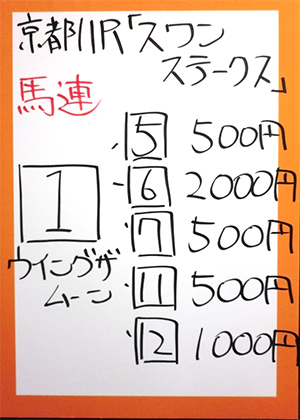 京都11R「スワン
ステークス」
馬連
5 500円
1 6 2000円
7 500円
ウイングザ
ムーン
11 500円
12 1000円